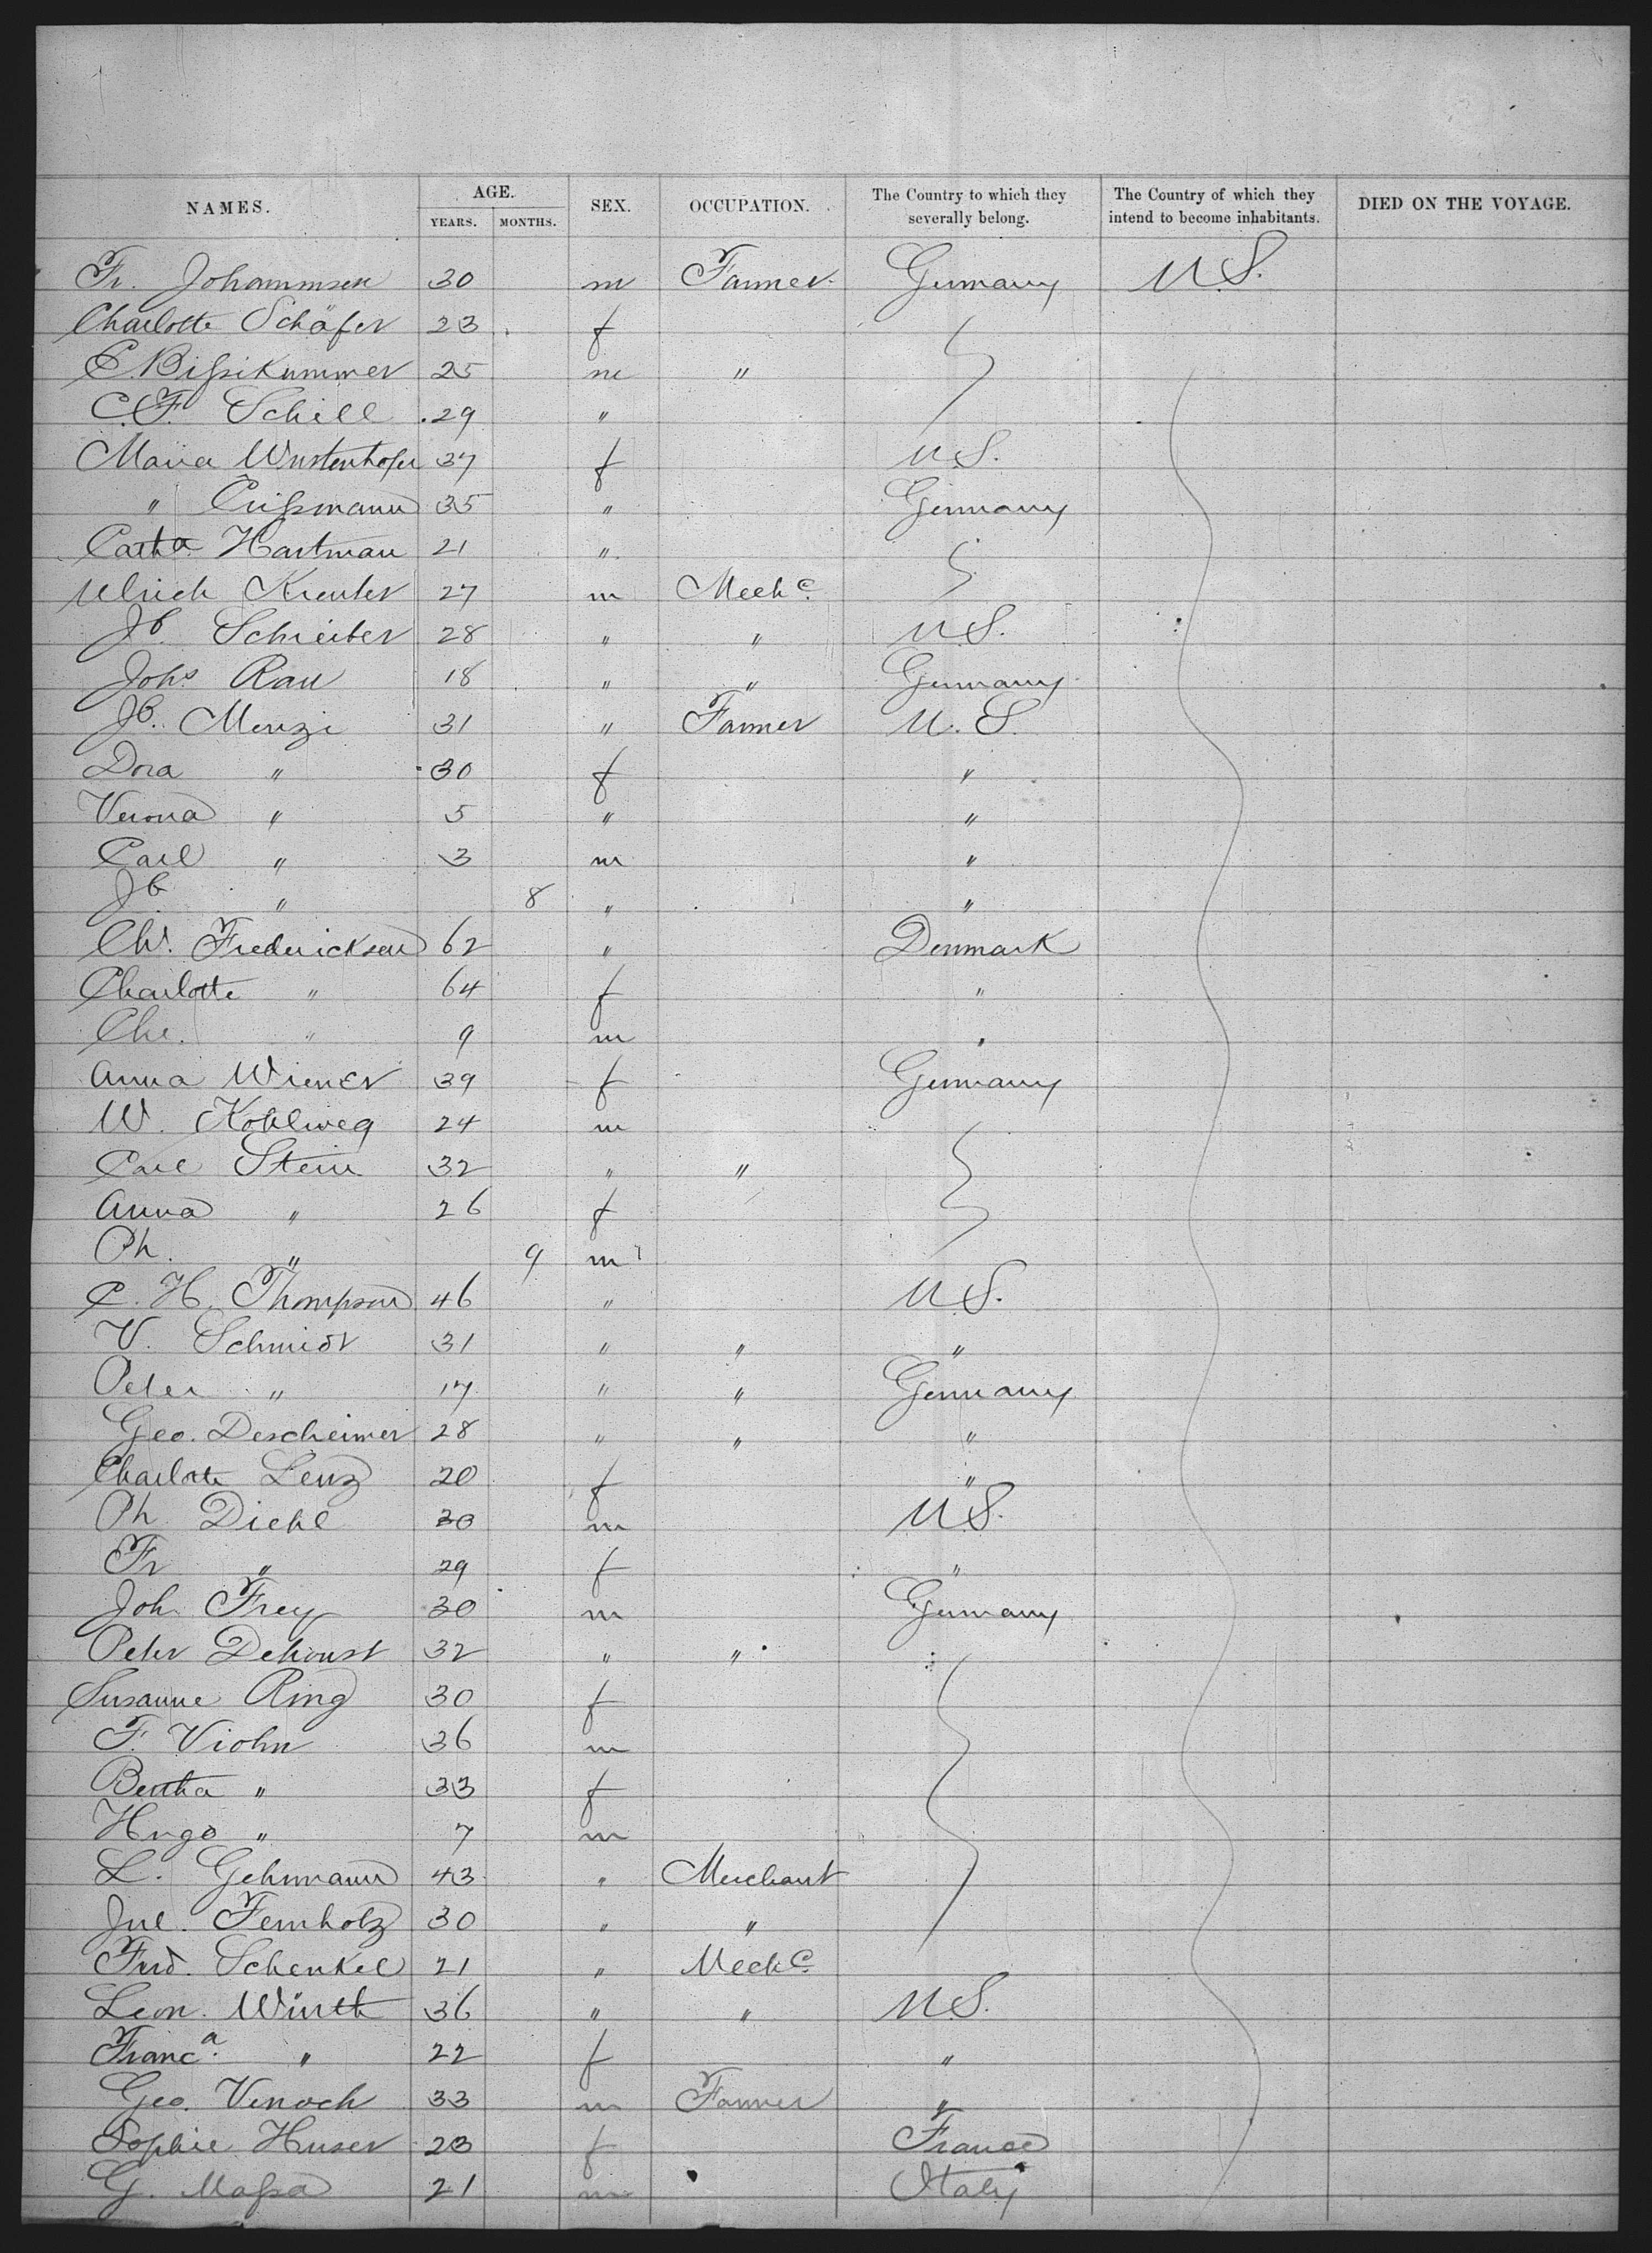 NAMES. AGE. SEX. OCCUPATION. The Country to which they severally belong. The Country of which they intend to become inhabitants. DIED ON THE VOYAGE.
YEARS. MONTHS.
Fr. Johannmsen 30 m Farmer Germany U.S.
Charlotte Schäfer 23 f
25 m "
C.F. Schill 29 "
Maria Wustenhofer 37 f U.S.
" 35 " Germany
Cath a Hartman 21 "
Ulrich Kreuter 27 m Mech c.
Jb. Schreiber 28 " " U.S.
Joh s Rau 18 " " Germany
Jb. Menzi 31 " Farmer U.S.
Dora " 30 f "
Verona " 5 " "
Carl " 3 m "
Jb " 8 " "
Chr. Fredericksen 62 " Denmark
Charlotte " 64 f "
Chr. " 9 m "
Anna Wiener 39 f Germany
W. Kohlweg 24 m
Carl Stein 32 " "
Anna " 26 f
Ph. " 9 m
C. H. Thompson 46 " U.S.
V. Schmidt 31 " " "
Peter " 17 " " Germany
Geo. Descheimer 28 " " "
Charlotte Lenz 20 f "
Ph Diehl 30 m U.S.
Fr " 29 f "
Joh Frey 30 m Germany
Peter Dehoust 32 " "
Susanne Ring 30 f
F. Viohn 36 m
Bertha " 33 f
Hugo " 7 m
L. Gehrmann 43 " Merchant
Jul. Fernholz 30 " "
Frid. Schenkel 21 " Mech c.
Leon. Würth 36 " " U.S.
Franc a. " 22 f "
Geo. Venoch 33 m Farmer "
Sophie Huser 23 f France
G. Massa 21 m Italy